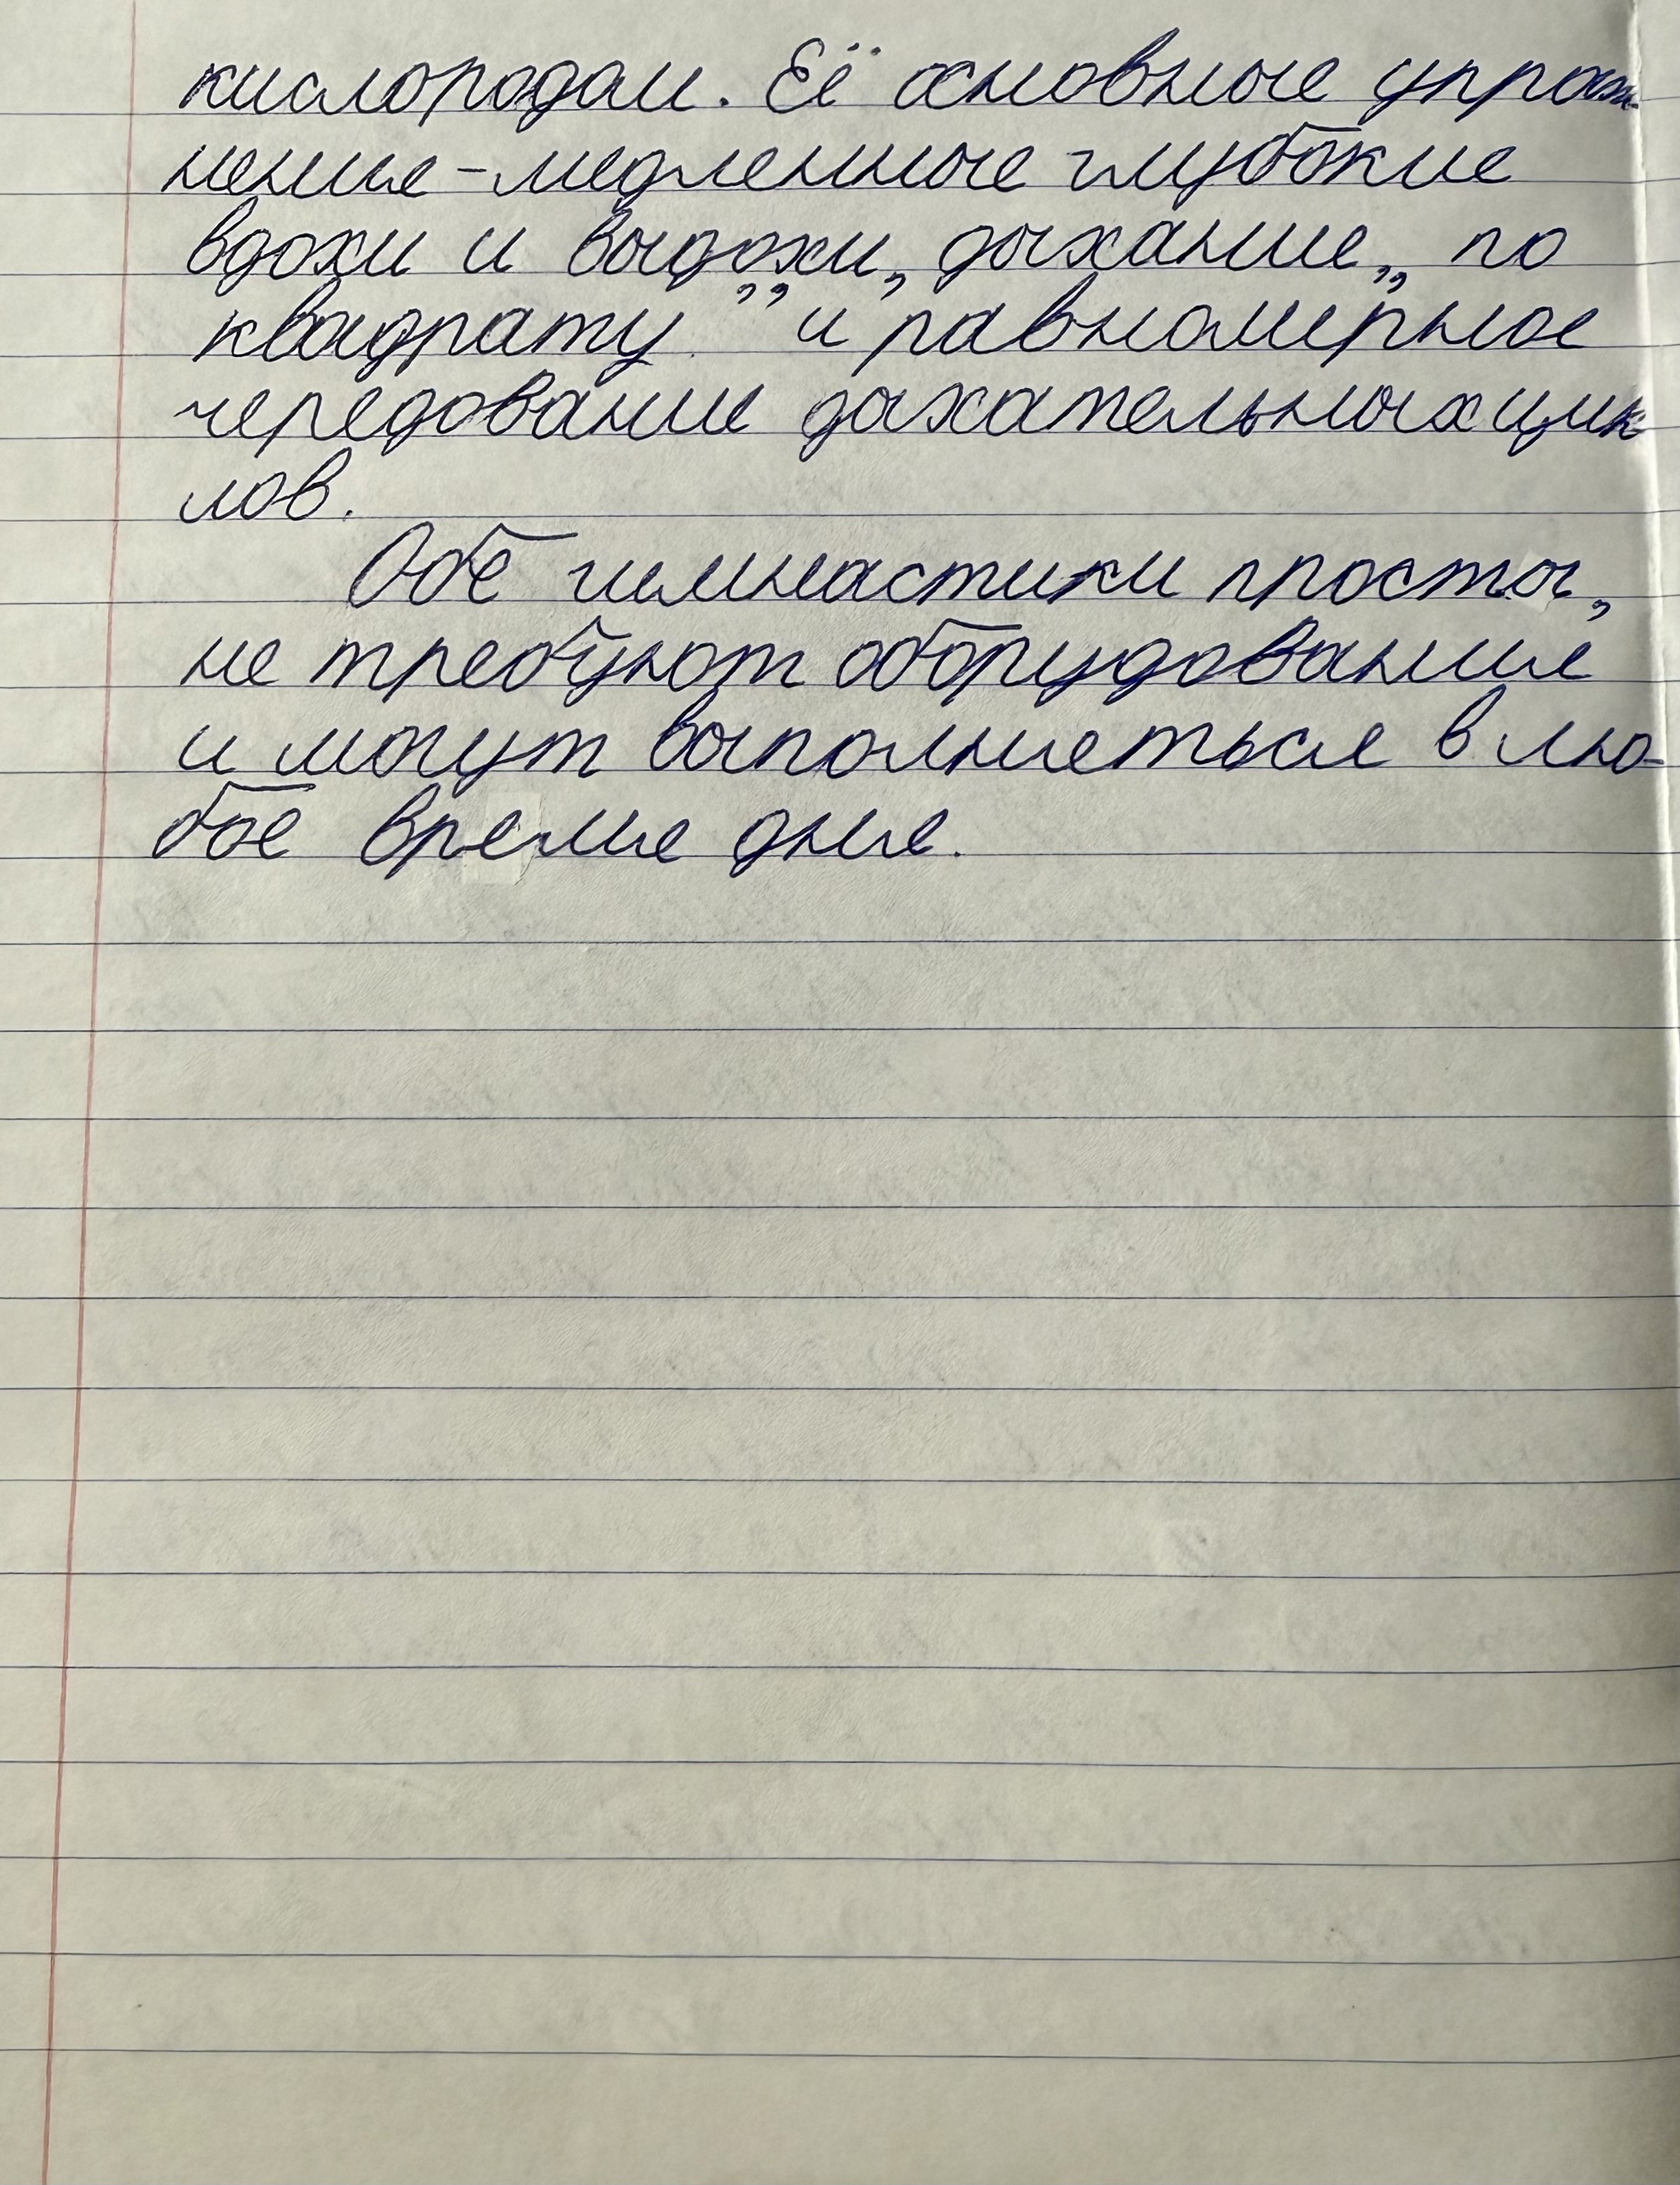 кислородом. Её основные упраж-
нения - медленные глубокие
вдохи и выдохи, дыхание „ по
квадрату ” и равномерное
чередование дыхательных цик-
лов.
Обе гимнастики просты,
не требуют оборудования
и могут выполняться в лю-
бое время дня.